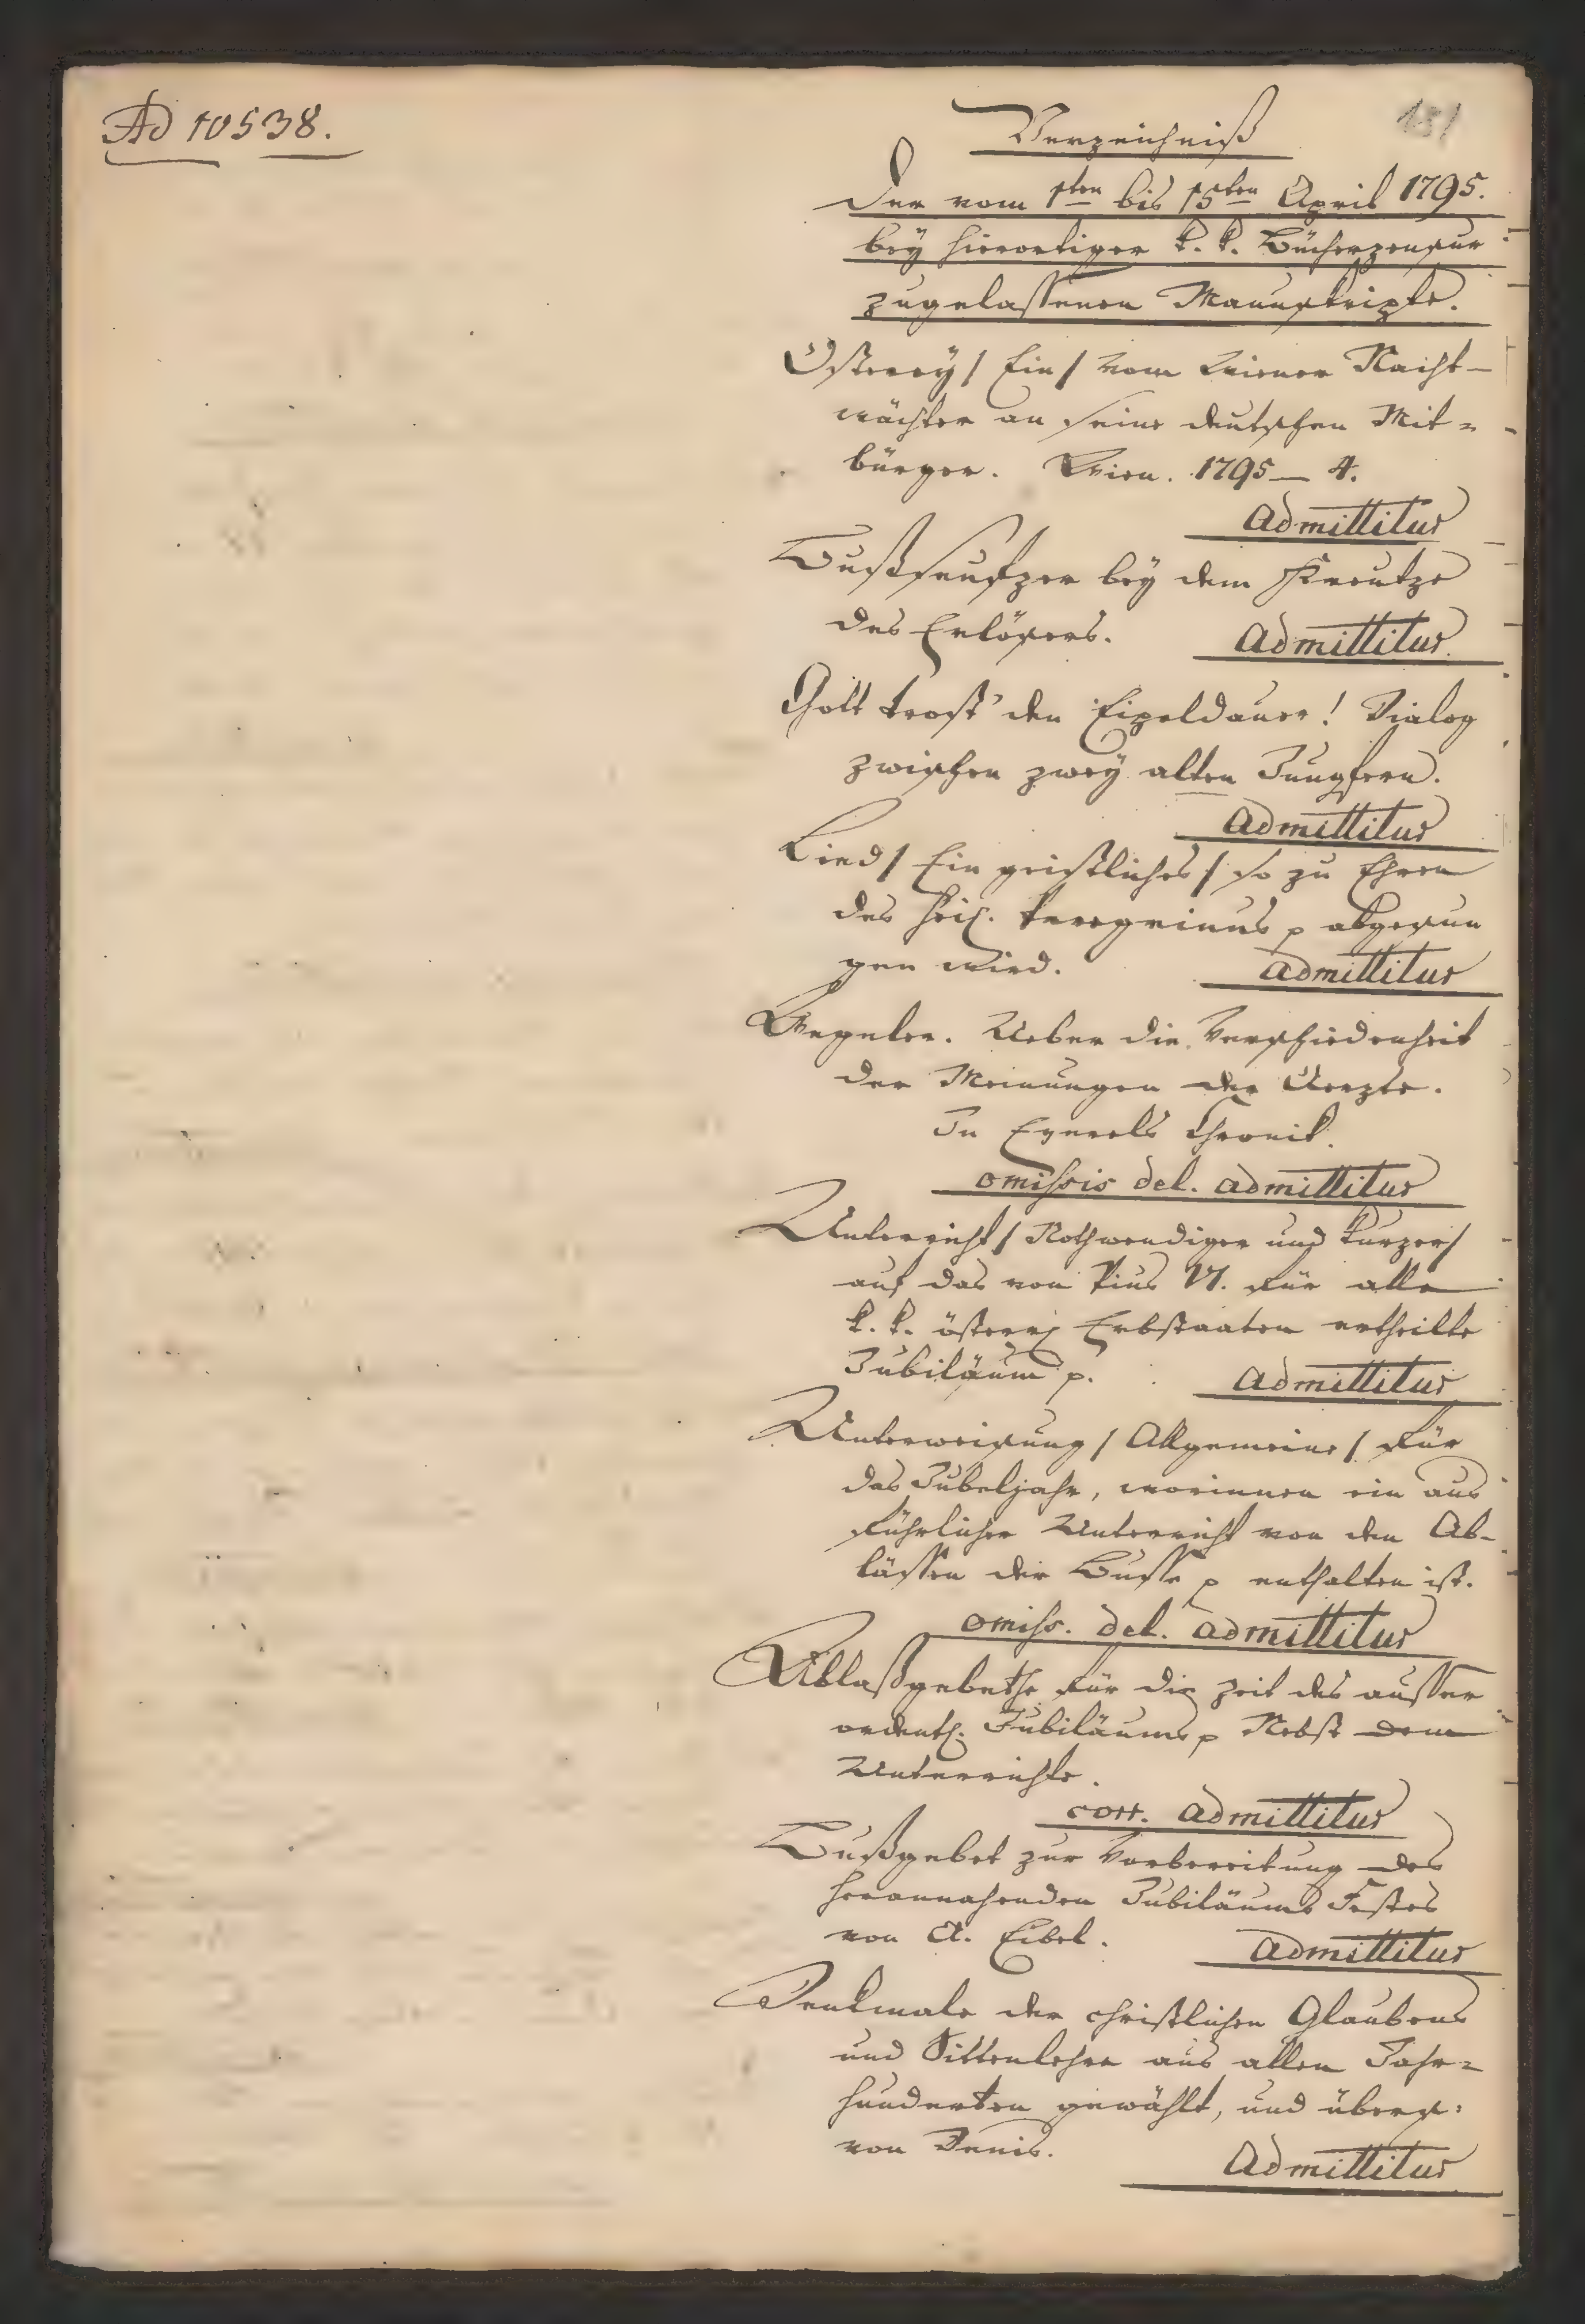 Ad 10538.
151
Verzeichniß
Der vom 1ten bis 15ten April 1795.
bey hierortiger k. k. Bücherzensur
zugelassenen Manuskripte.
Osterey / Ein / vom Wiener Nacht-
wächter an seine deutschen Mit=
bürger. Wien. 1795 — 4.
Admittitur
Bußseufzer bey dem Kreutze
des Erlösers. Admittitur
Gott trost' den Eipeldauer! Dialog
zwischen zwey alten Jungfern.
Admittitur
Lied / Ein geistliches / so zu Ehren
des heil. Peregrinus p abgesun
gen wird. admittitur
Wegeler. Ueber die Verschiedenheit
der Meinungen der Aerzte.
In Eyerels Chronik.
omissis del. admittitur
Unterricht / Nothwendiger und kurzer /
auf das von Pius VI. für alle
k. k. österr. Erbstaaten ertheilte
Jubiläum p. admittitur
Unterweisung / Allgemeine / für
das Jubeljahr, worinnen ein aus
führlicher Unterricht von den Ab-
lässen der Busse p enthalten ist.
omiss. del. admittitur
Ablaßgebethe für die Zeit des ausser
ordentl. Jubiläums p Nebst dem
Unterrichte.
corr. admittitur
Bußgebet zur Vorbereitung des
herannahenden Jubiläums Festes
von A. Eibel. admittitur
Denkmale der christlichen Glaubens
und Sittenlehre aus allen Jahr=
hunderten gewählt, und übers.
von Denis. Admittitur